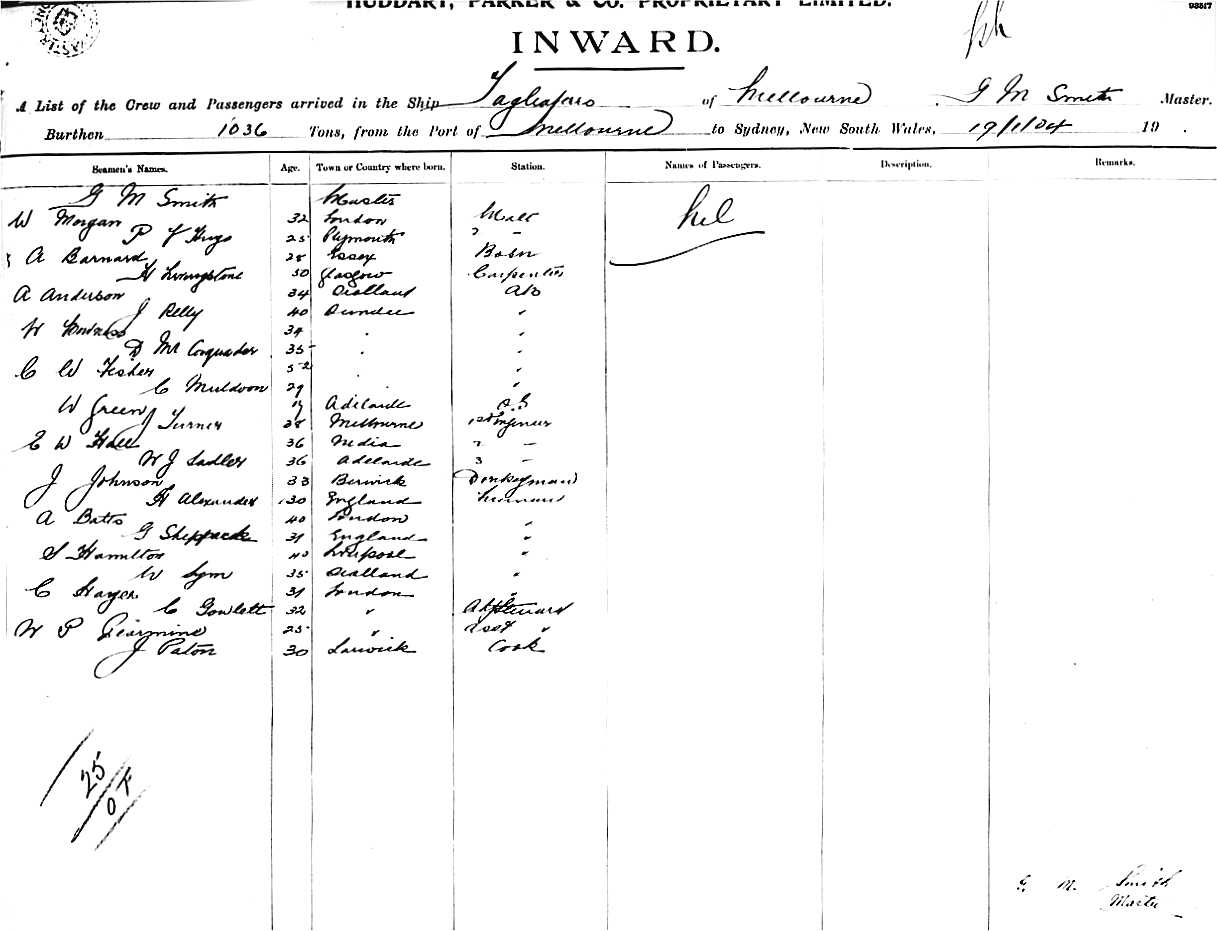 HUDDART, PARKER & CO. PROPRIETARY LIMITED.
93517
INWARD.
A List of the Crew and Passengers arrived in the Ship Tagliaferro of Melbourne G M Smith Master.
Burthen 1036 Tons, from the Port of Melbourne to Sydney, New South Wales, 19/1/04 19 .
Seamen's Names. Age. Town or Country where born. Station. Names of Passengers. Description. Remarks.
G M Smith Master
W Morgan 32 London Mate
P J Hugo 25 Plymouth 2 -
A Barnard 28 Essex Bosn
H Livingstone 50 Glasgow Carpenter
A Anderson 34 Scotland AB
J Relly 40 Dundee "
W 34 . "
D 35 . "
C W Fisher 52 . "
C Muldoon 29 . "
W Green 19 Adelaide O.S
J Turner 28 Melbourne 1st Engineer
E W Hall 36 India 2 -
W J Sadler 36 Adelaide 3 -
J Johnson 33 Berwick Donkeyman
H Alexander 30 England Fireman
A Batts 40 London "
G Sheppack 31 England "
S Hamilton 40 Liverpool "
W Sym 35 Scotland "
C Hayes 31 London "
C Gowlett 32 " Steward
W P 25 " Asst "
J Paton 30 Larwick Cook
Nil
25
G. M. Smith
Master